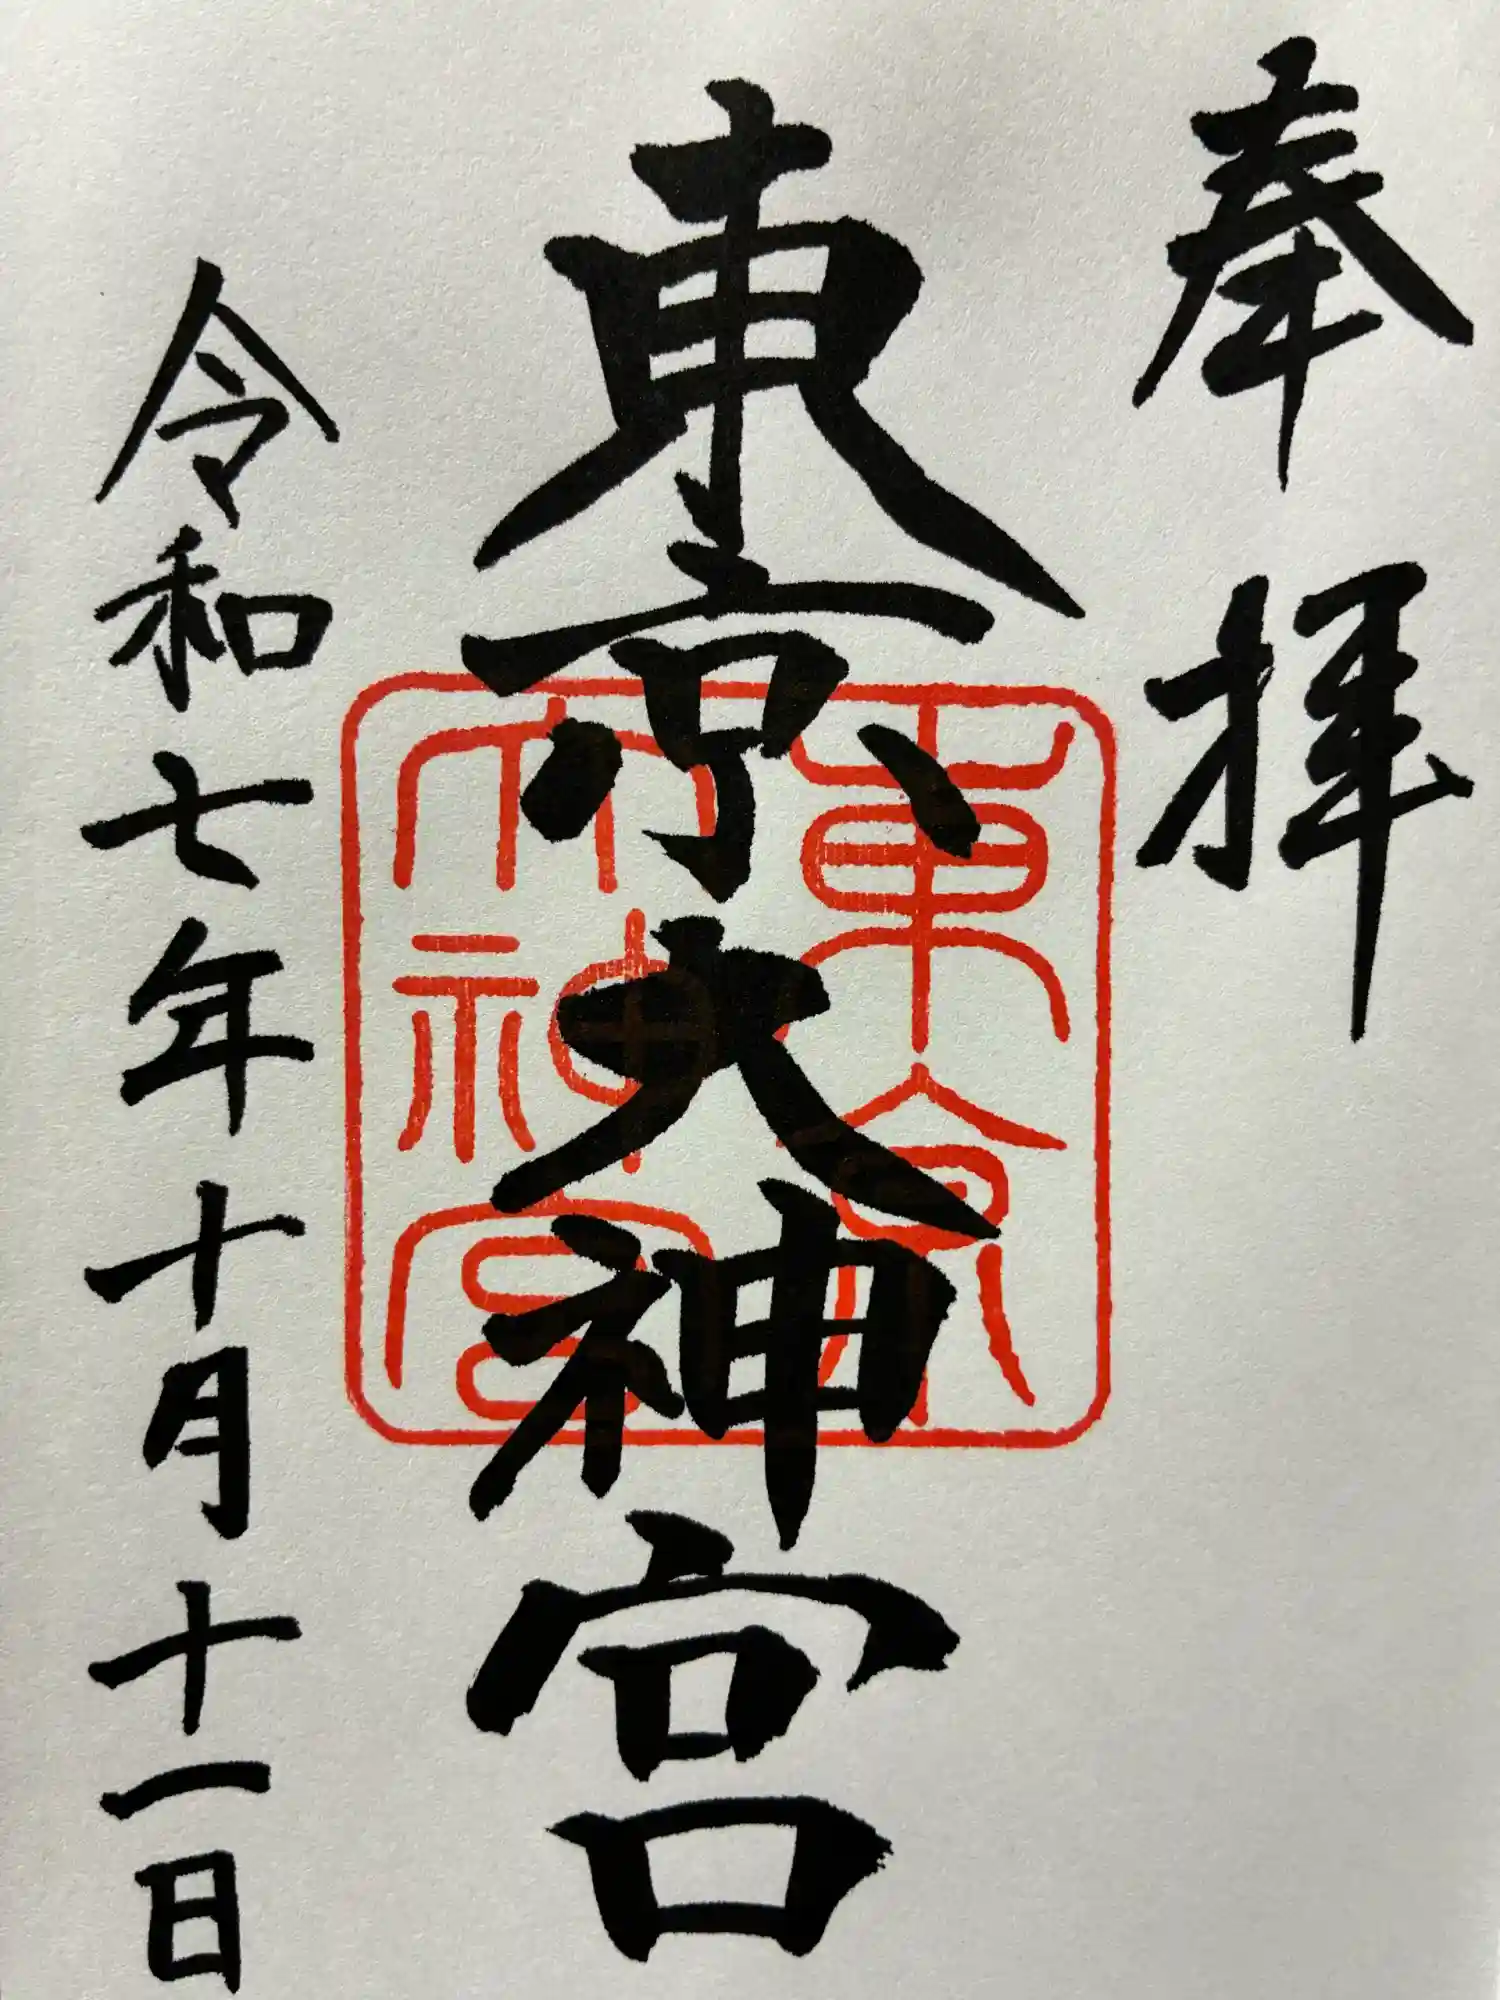 奉拝
東京大神宮
東京
大神宮
令和七年十月十一日